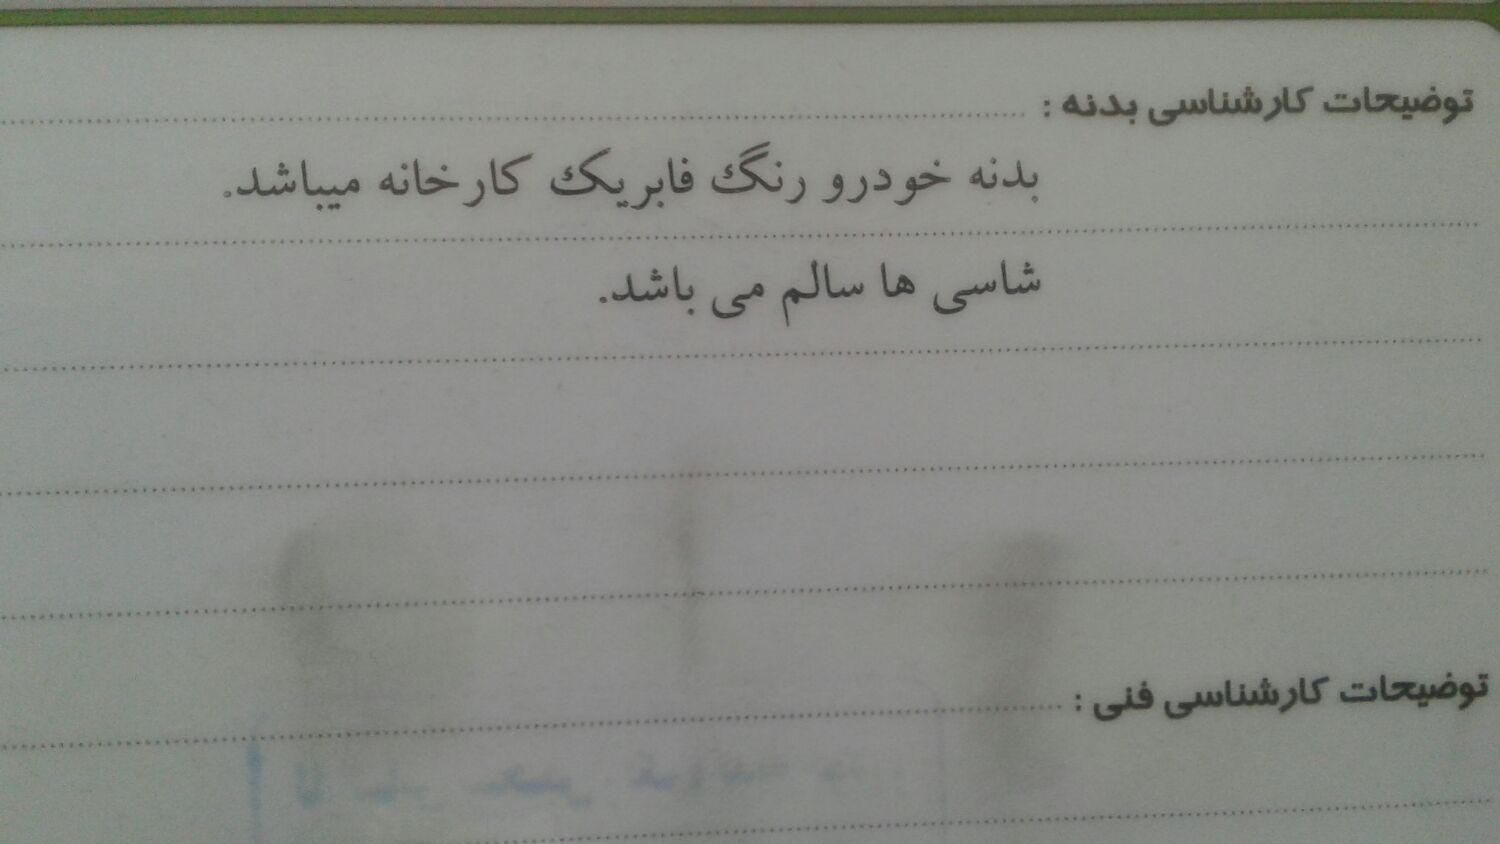 توضیحات کارشناسی بدنه :
بدنه خودرو رنگ فابریک کارخانه میباشد.
شاسی ها سالم می باشد.
توضیحات کارشناسی فنی :